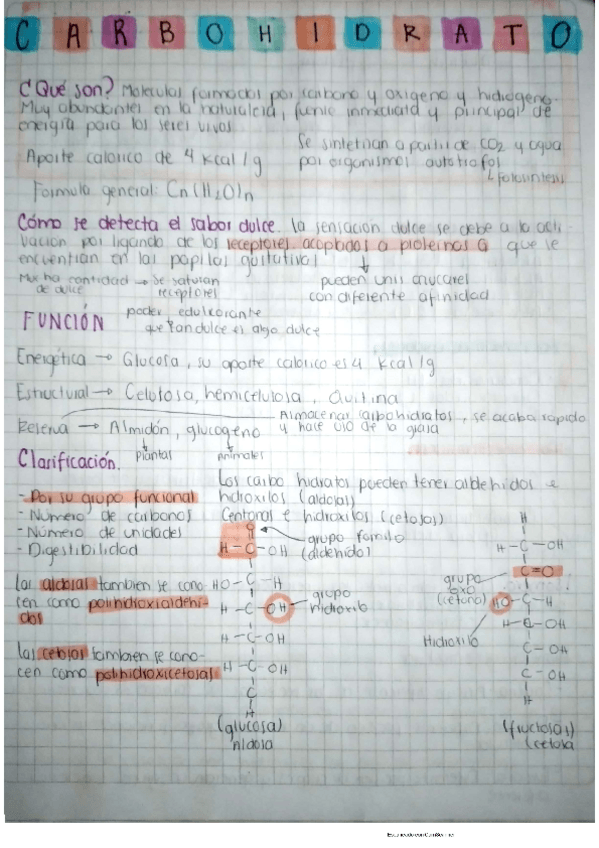 CARBOHIDRATO
¿Qué son? Moleculas formadas por carbono y oxigeno y hidrogeno.
Muy abundantes en la naturaleza, fuente inmediata y principal de
energía para los seres vivos.
Se sintetizan a partir de CO2 y agua
Aporte calorico de 4 kcal/g
por organismos autotrofos
↳ fotosintesis
Formula general: Cn(H2O)n
Cómo se detecta el sabor dulce. la sensación dulce se debe a la acti-
vación por ligando de los receptores acoplados a proteinas G que se
encuentran en las papilas gustativas
Mucha cantidad → se saturan
de dulce receptores
pueden unir azucares
con diferente afinidad
FUNCIÓN
poder edulcorante
que tan dulce es algo dulce
Energética → Glucosa, su aporte calorico es 4 kcal/g
Estructural → Celulosa, hemicelulosa, Quitina
Almacenar carbohidratos, se acaba rapido
y hace uso de la grasa
Reserva → Almidón, glucogeno
plantas animales
Clasificación.
Los carbo hidratos pueden tener aldehidos e
hidroxilos (aldosas)
Centonas e hidroxilos (cetosas)
- Por su grupo funcional
- Número de carbonos
- Número de unidades
- Digestibilidad
grupo formilo
(aldehido)
Las aldosas tambien se cono-
cen como polihidroxialdehi-
dos
Las cetosas tambien se cono-
cen como polihidroxicetosas
O
H-C-OH
HO-C-H
H-C-OH
grupo
hidroxilo
H-C-OH
H-C-OH
C
H
(glucosa)
aldosa
H
H-C-OH
C=O
grupo
oxo
(cetona)
HO-C-H
Hidroxilo
H-C-OH
C-OH
C-OH
H
(fructosa)
(cetosa
Escaneado con CamScanner